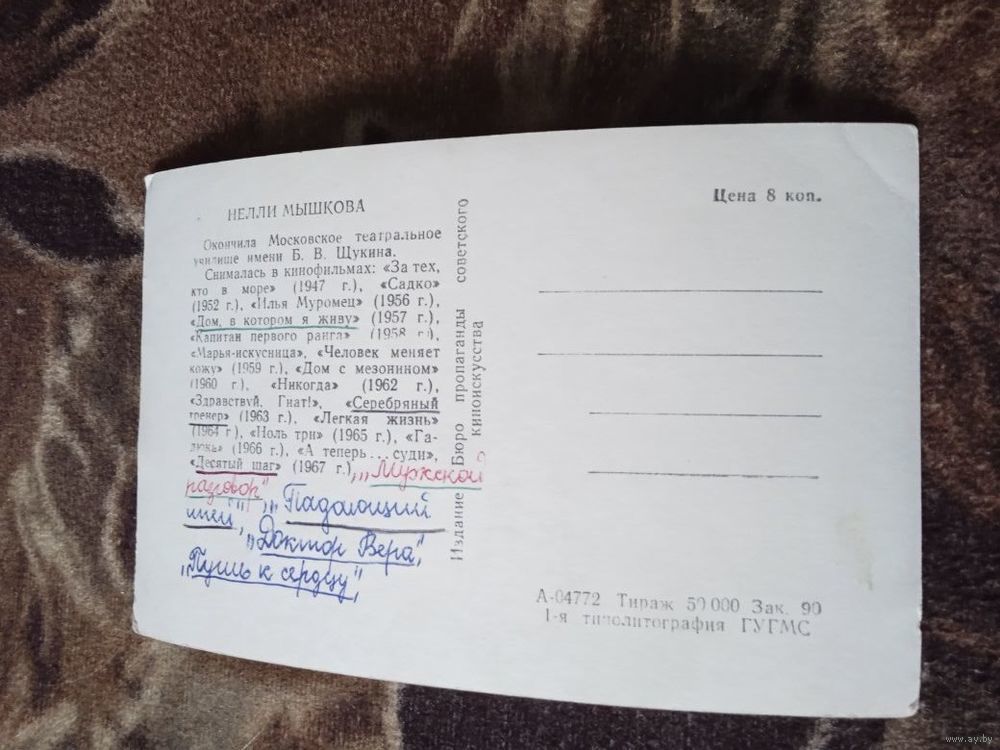 НЕЛЛИ МЫШКОВА
Окончила Московское театральное
училище имени Б. В. Щукина.
Снималась в кинофильмах: «За тех,
кто в море» (1947 г.), «Садко»
(1952 г.), «Илья Муромец» (1956 г.),
«Дом, в котором я живу» (1957 г.),
«Капитан первого ранга» (1958 г.),
«Марья-искусница», «Человек меняет
кожу» (1959 г.), «Дом с мезонином»
(1960 г.), «Никогда» (1962 г.),
«Здравствуй, Гнат!», «Серебряный
тренер» (1963 г.), «Легкая жизнь»
(1964 г.), «Ноль три» (1965 г.), «Га-
дюка» (1966 г.), «А теперь... суди»,
«Десятый шаг» (1967 г.), „Мужской
разговор", „Падающий
иней", „Доктор Вера",
„Путь к сердцу",
Издание Бюро пропаганды советского
киноискусства
Цена 8 коп.
А-04772 Тираж 50 000 Зак. 90
1-я типолитография ГУГМС
www.ay.by